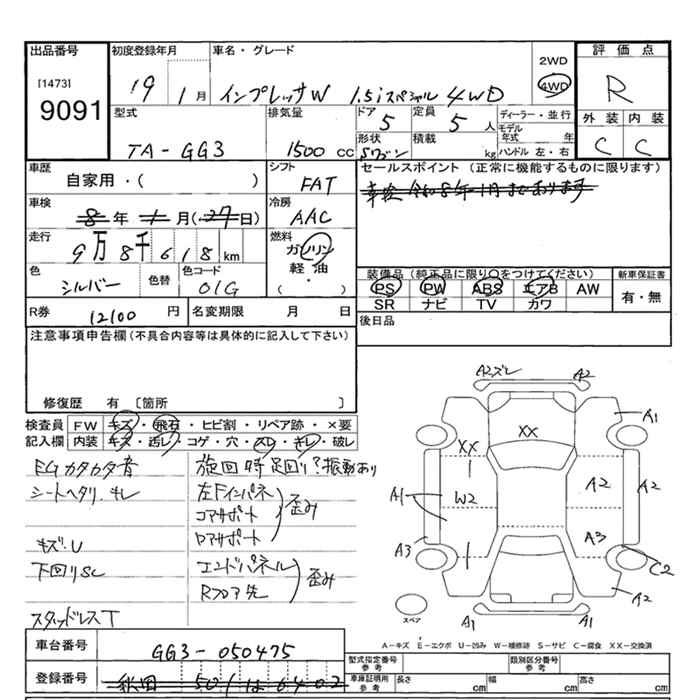 出品番号
[1473]
9091
初度登録年月
19 1 月
車名・グレード
インプレッサW 1.5iスペシャル 4WD
2WD
4WD
評価点
R
外装 内装
C C
型式
TA-GG3
排気量
1500 cc
ドア
5
定員
5 人
形状
積載
kg
ディーラー・並行
モデル年式 年
ハンドル 左・右
車歴
自家用・( )
シフト
FAT
セールスポイント (正常に機能するものに限ります)
車検令和8年1月まであります
車検
8 年 1 月(27日)
冷房
AAC
走行
9万8千618 km
燃料
ガソリン
軽油
・
( )
色
シルバー
色替
色コード
01G
装備品(純正品に限り○をつけてください)
PS PW ABS エアB AW
SR ナビ TV カワ
新車保証書
有・無
R券
12100 円
名変期限 月 日
後日品
注意事項申告欄(不具合内容等は具体的に記入して下さい)
修復歴 有 〔箇所 〕
検査員記入欄
FW キズ・飛石・ヒビ割・リペア跡・×要
内装 キズ・汚レ・コゲ・穴・スレ・キレ・破レ
EGカタカタ音
シートヘタリ、キレ
キズ・U
下回りSC
スタッドレスT
旋回時足回り?振動あり
左Fインパネ
コアサポート
ロアサポート
歪み
エンドパネル
Rフロア先
歪み
A2ズレ A2
A1
XX
XX
A1 W2 A2 A2
A3 A3
C2
A2
A1 A1
スペア
A-キズ E-エクボ U-凹み W-補修跡 S-サビ C-腐食 XX-交換済
車台番号
GG3-050475
登録番号
秋田 501
型式指定番号
参考
類別区分番号
参考
車庫証明用
参考
長さ cm
幅 cm
高さ cm